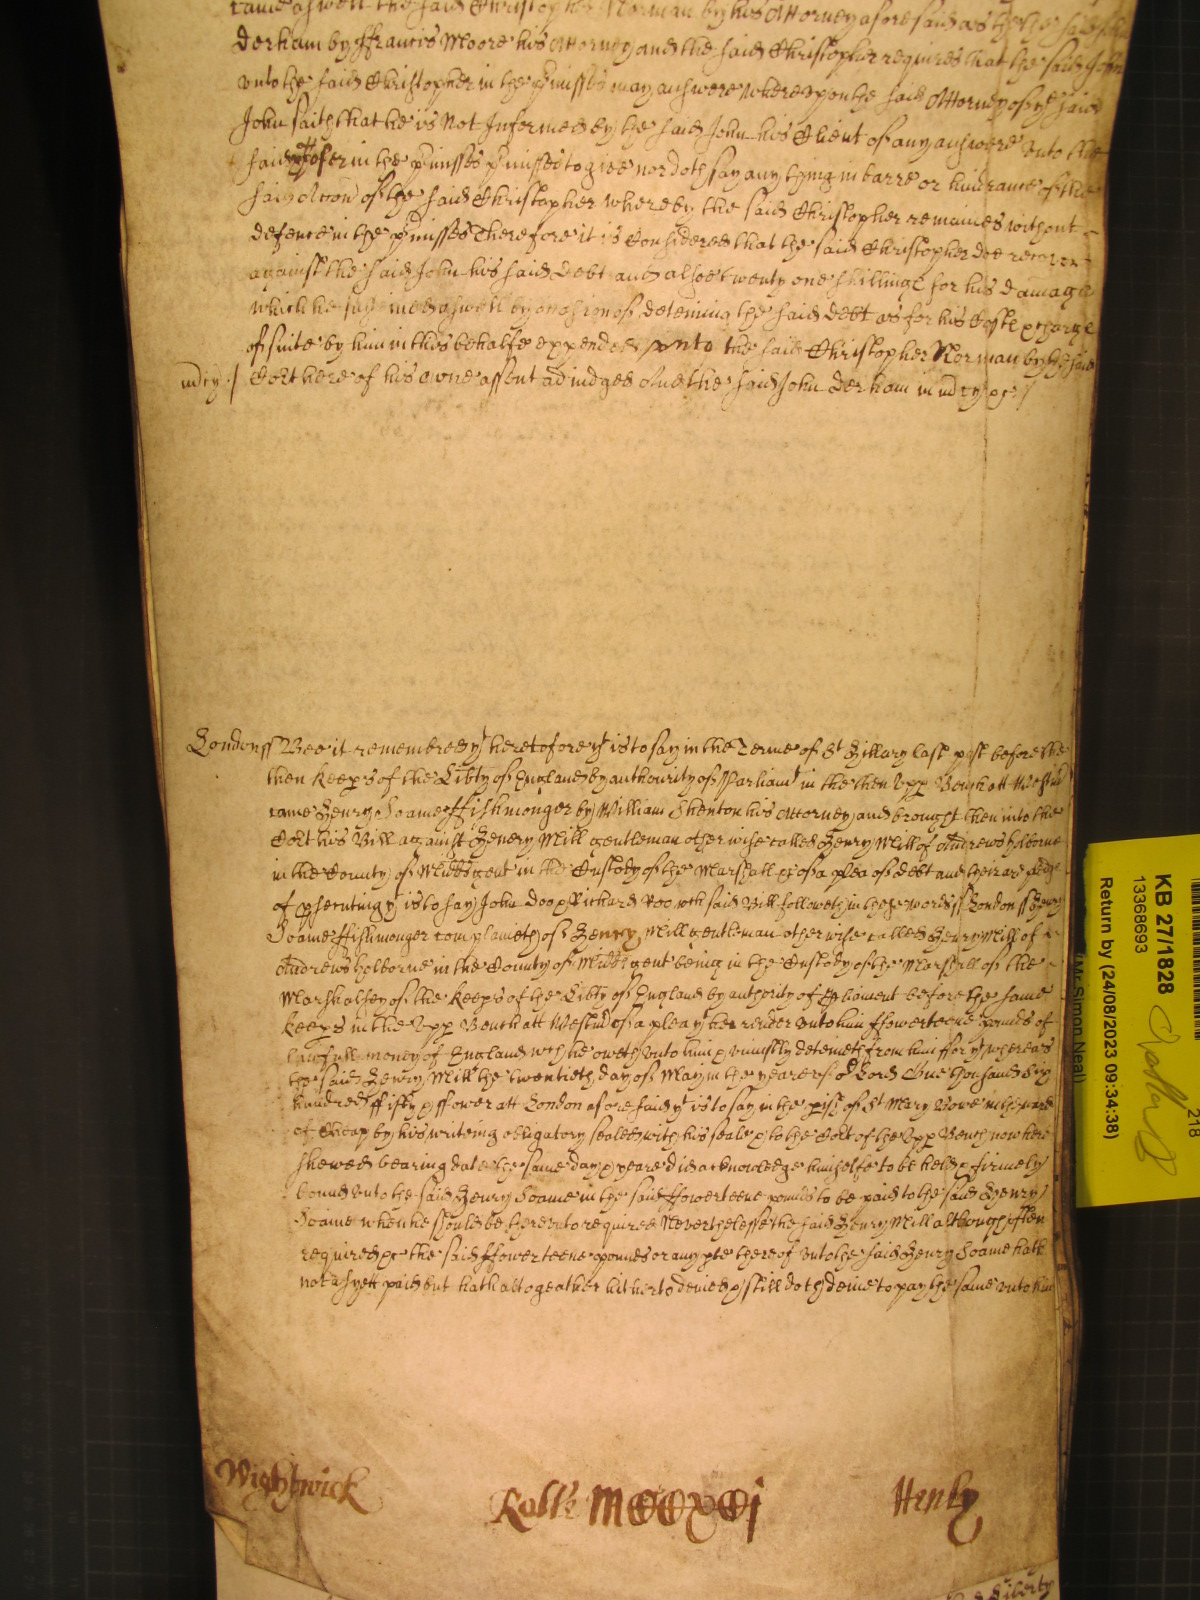 came aswell the said Christopher Norman by his Attorney aforesaid as the said John
Derham by Ffrancis Moore his Attorney and the said Christopher requires that the said John
unto the said Christopher in the p'misses may answere whereupon the said Attorney of ye said
John saith that he is Not Informed by the said John his Client of any answere unto the
said in the p'misses p'misses to give nor doth say any thing in barre or hindrance of the
said accon of the said Christopher whereby the said Christopher remaines without
defence in the p'misses Therefore it is Considered that the said Christopher doe recover
against the said John his said debt and alsoe twenty one shillings for his damage
which he susteined aswell by occasion of deteining the said debt as for his Costs & charge
of suite by him in this behalfe expended unto the said Christopher Norman by the said
Cort here of his owne assent adiudged And the said John Derham in mcy &c /
mcy /
London ss Bee it remembred yt heretofore yt is to say in the Terme of St Hillary last past before the
then Keep's of the Lib'ty of England by authority of Parliamt in the then Upp Bench att Westm'
came Henry Soame Ffishmonger by William Shenton his Attorney and brought then into the
Cort his Bill against Henery Mill gentleman otherwise called Henry Mill of Andrews holborne
in the County of Midds gent in the Custody of the Marshall &c of a plea of debt and there are pledge
of p'secuting yt is to say John Doo & Richard Roo wch said Bill followeth in these words ss London ss Henry
Soame Ffishmonger complaineth of Henry Mill gentleman otherwise called Henry Mill of
Andrews holborne in the County of Midds gent being in the Custody of the Marshall of the
Marshalsey of the Keep's of the Lib'ty of England by authority of Parliament before the same
Keep's in the Upp Bench att Westm' of a plea yt hee render unto him ffowerteene pounds of
lawfull money of England wch he oweth unto him & uniustly deteineth from him ffor yt whereas
the said Henry Mill the twentieth day of May in the yeare of or Lord One thousand Six
hundred ffifty & ffower att London aforesaid yt is to say in the p'ish of St Mary Bowe in the ward
of Cheap by his writeing obligatory sealed with his seale & to the Cort of the Upp Bench now here
shewed bearing date the same day & yeare did acknowledge himselfe to be held & firmely
bound unto the said Henry Soame in the said ffowerteene pounds to be paid to the said Henry
Soame when he should be thereunto required Neverthelesse the said Henry Mill although often
required &c the said ffowerteene pounds or any p'te thereof unto the said Henry Soame hath
not as yett paid but hath altogeather hitherto denied & still doth denie to pay the same unto him
Wightwick
Rolle MCCXCj
Henly
KB 27/1828
13368693
Return by (24/08/2023 09:34:38)
(Mr Simon Neal)
218